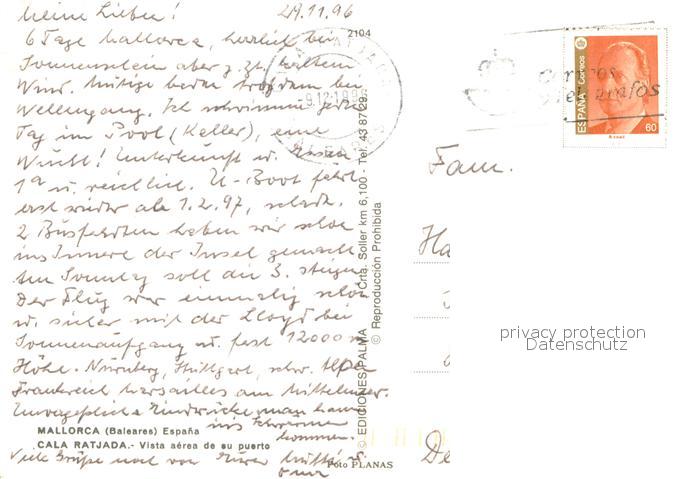 Meine Lieben! 29.11.96
6 Tage Mallorca, herrlich bei
Sonnenschein aber z.Zt. kaltem
Wind. Mutige baden trotzdem bei
Wellengang. Ich schwimme jeden
Tag im Pool (Keller), eine
Wucht! Unterkunft u. Essen
1a u. reichlich. U-Boot fährt
erst wieder ab 1.2.97, schade.
2 Busfahrten haben wir schon
ins Innere der Insel gemacht
Am Sonntag soll die 3. steigen
Der Flug war einmalig schön
u. sicher mit der Lloyd bei
Sonnenaufgang u. fast 12000 m
Höhe. Nürnberg, Stuttgart, schw. Alpen
Frankreich Marsailles am Mittelmeer.
Unvergeßliche Eindrücke, man kann
ins Schwärmen
kommen.
Viele Grüße noch von Eurer Mutti u.
Oma
MALLORCA (Baleares) España
CALA RATJADA.- Vista aérea de su puerto
Foto PLANAS
2104
© EDICIONES PALMA Crta. Soller km 6,100 - Tel. 43 87 29
© Reproducción Prohibida
BALEARES
Correos
ESPAÑA Correos
60
Fam.
Ha
De
privacy protection
Datenschutz